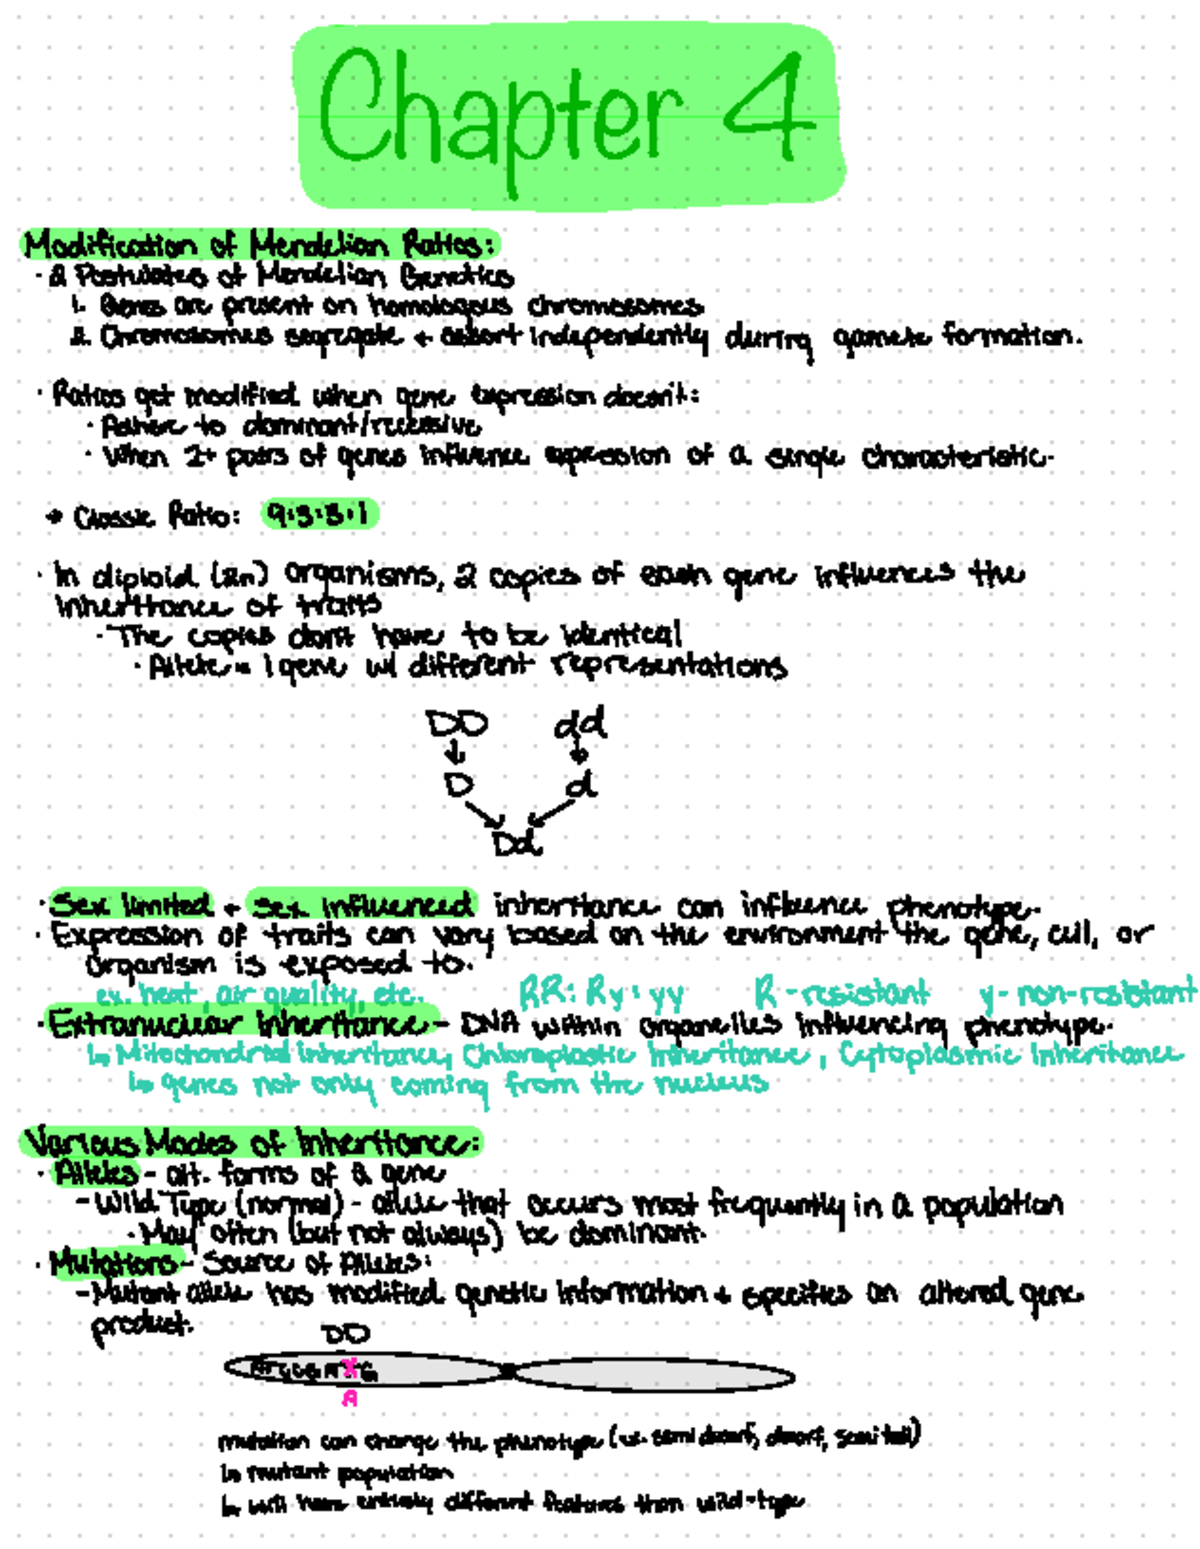 Chapter 4
Modification of Mendelian Ratios:
· 2 Postulates of Mendelian Genetics
1. Genes are present on homologous chromosomes
2. Chromosomes segregate + assort independently during gamete formation.
· Ratios get modified when gene expression doesn't:
· Adhere to dominant/recessive
· When 2+ pairs of genes influence expression of a single characteristic.
→ Classic Ratio: 9:3:3:1
· In diploid (2n) organisms, 2 copies of each gene influences the
inheritance of traits
· The copies don't have to be identical
· Allele = 1 gene w/ different representations
DD dd
↓ ↓
D d
Dd
· Sex limited + sex influenced inheritance can influence phenotype.
· Expression of traits can vary based on the environment the gene, cell, or
organism is exposed to.
ex. heat, air quality, etc. RR: Ry: yy R - resistant y - non-resistant
· Extranuclear Inheritance - DNA within organelles influencing phenotype.
↳ Mitochondrial inheritance, Chloroplastic Inheritance, Cytoplasmic Inheritance
↳ genes not only coming from the nucleus
Various Modes of Inheritance:
· Alleles - alt. forms of a gene
- Wild Type (normal) - allele that occurs most frequently in a population
· May often (but not always) be dominant.
· Mutations - Source of Alleles:
- Mutant allele has modified genetic information + specifies an altered gene
product.
DD
A
mutation can change the phenotype (semi dwarf, dwarf, semi tall)
↳ mutant population
↳ will have entirely different features than wild-type